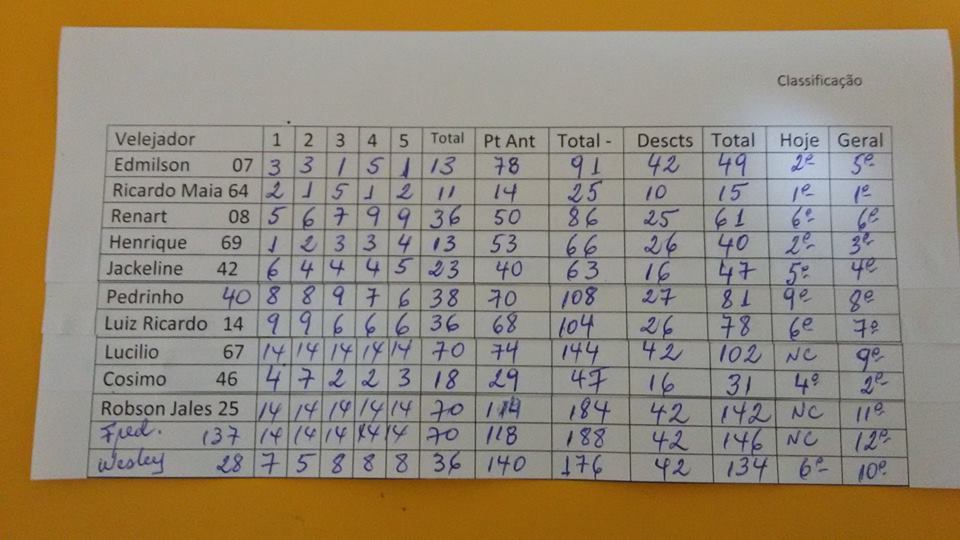 Classificação
Velejador 1 2 3 4 5 Total Pt Ant Total - Descts Total Hoje Geral
Edmilson 07 3 3 1 5 1 13 78 91 42 49 2º 5º
Ricardo Maia 64 2 1 5 1 2 11 14 25 10 15 1º 1º
Renart 08 5 6 7 9 9 36 50 86 25 61 6º 6º
Henrique 69 1 2 3 3 4 13 53 66 26 40 2º 3º
Jackeline 42 6 4 4 4 5 23 40 63 16 47 5º 4º
Pedrinho 40 8 8 9 7 6 38 70 108 27 81 9º 8º
Luiz Ricardo 14 9 9 6 6 6 36 68 104 26 78 6º 7º
Lucilio 67 14 14 14 14 14 70 74 144 42 102 NC 9º
Cosimo 46 4 7 2 2 3 18 29 47 16 31 4º 2º
Robson Jales 25 14 14 14 14 14 70 114 184 42 142 NC 11º
Fred. 137 14 14 14 14 14 70 118 188 42 146 NC 12º
Wesley 28 7 5 8 8 8 36 140 176 42 134 6º 10º